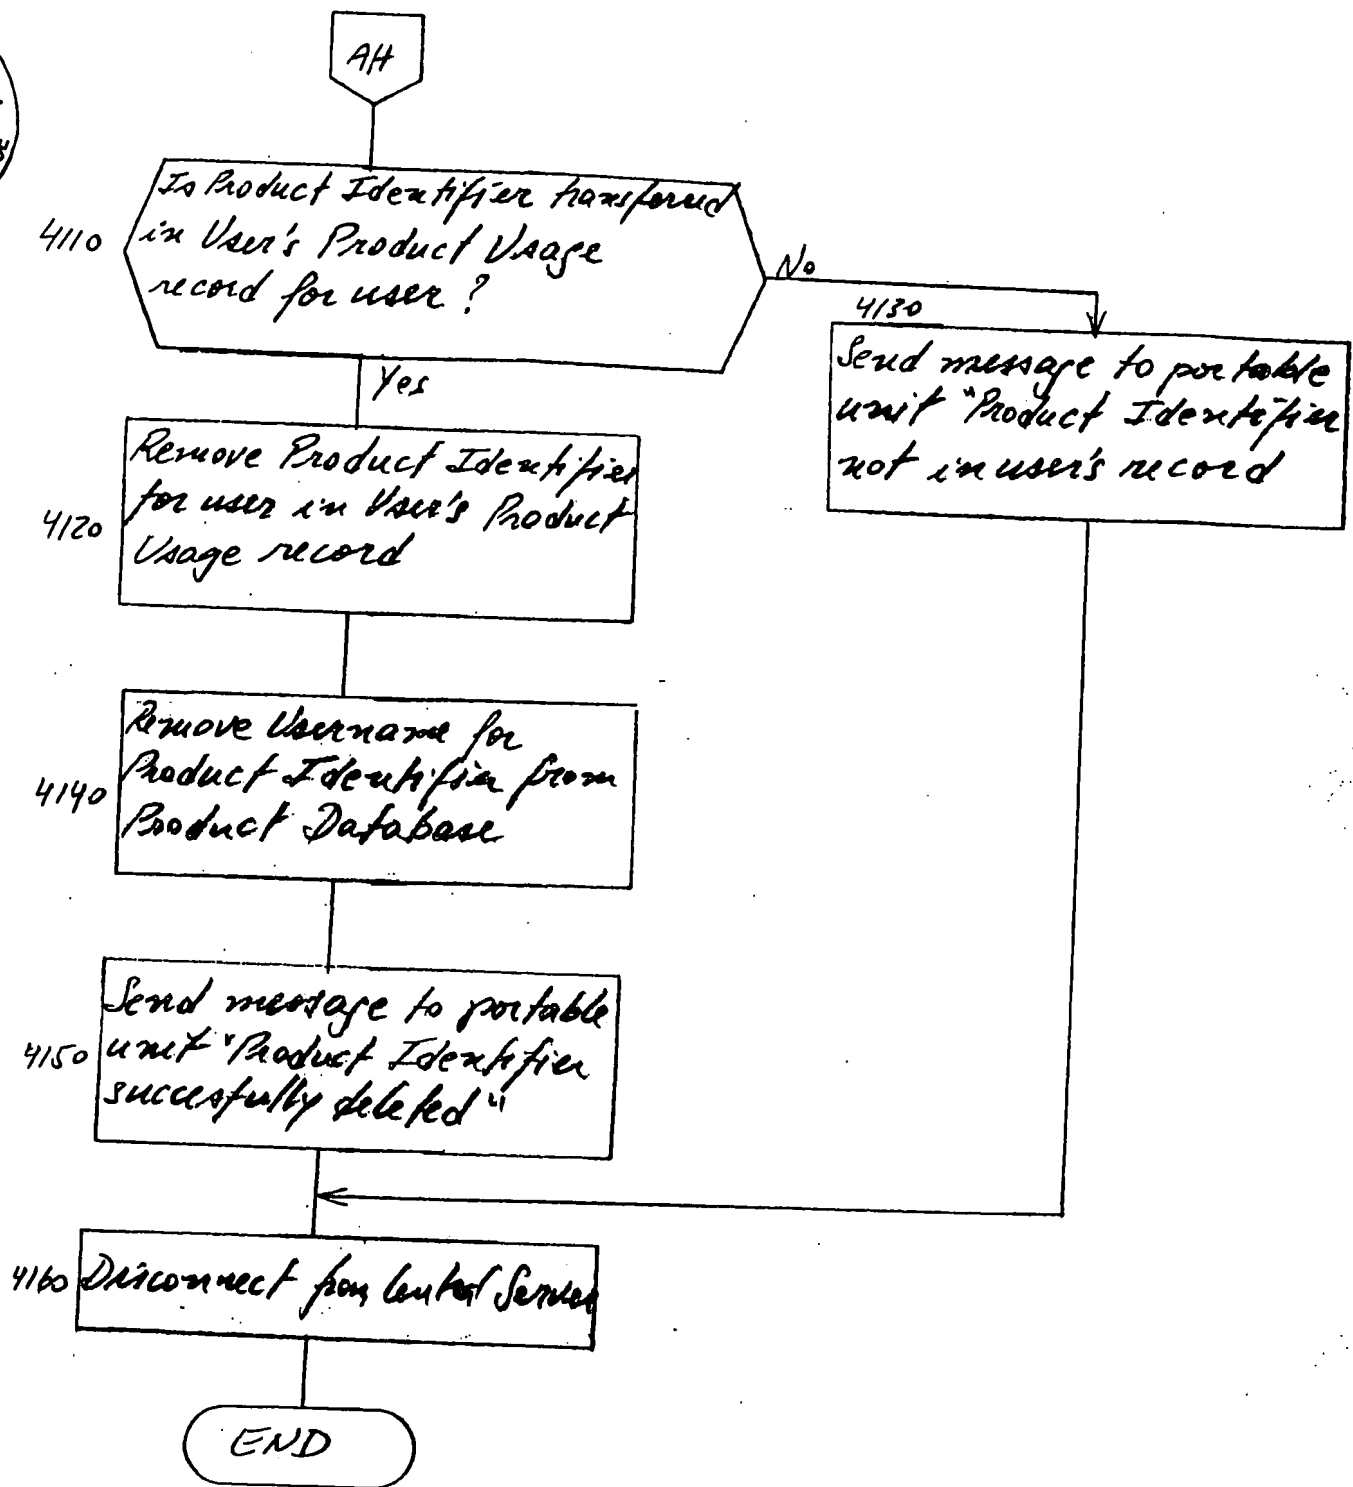 AH
Is Product Identifier transferred
4110
in User's Product Usage
record for user?
No
Yes
4130
Send message to portable
unit "Product Identifier
not in user's record
Remove Product Identifier
4120
for user in User's Product
Usage record
Remove Username for
4140
Product Identifier from
Product Database
Send message to portable
4150
unit "Product Identifier
succesfully deleted"
4160
Disconnect from Central Server
END